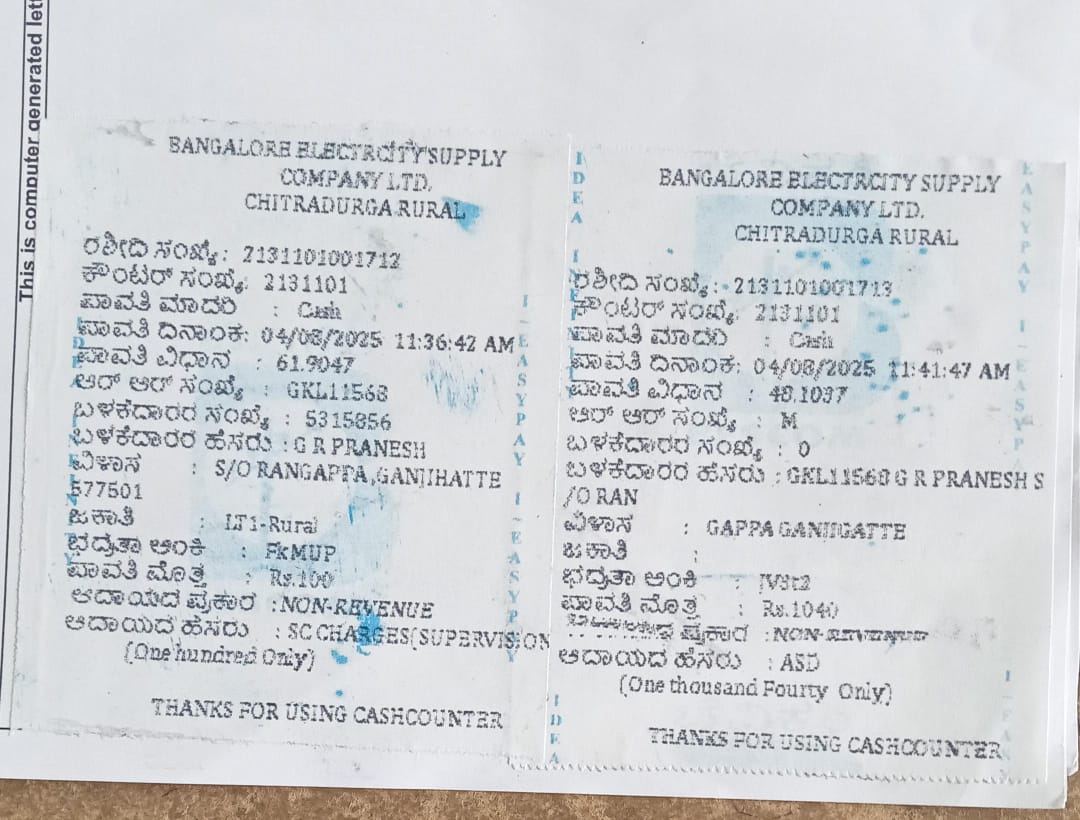 This is computer generated lett
BANGALORE ELECTRCITY SUPPLY
COMPANY LTD.
CHITRADURGA RURAL
ರಶೀದಿ ಸಂಖ್ಯೆ: 2131101001712
ಕೌಂಟರ್ ಸಂಖ್ಯೆ: 2131101
ಪಾವತಿ ಮಾದರಿ : Cash
ಪಾವತಿ ದಿನಾಂಕ: 04/08/2025 11:36:42 AM
ಪಾವತಿ ವಿಧಾನ : 61.9047
ಆರ್ ಆರ್ ಸಂಖ್ಯೆ : GKL11568
ಬಳಕೆದಾರರ ಸಂಖ್ಯೆ : 5315856
ಬಳಕೆದಾರರ ಹೆಸರು : G R PRANESH
ವಿಳಾಸ : S/O RANGAPPA,GANJIHATTE
577501
ಜಕಾತಿ : LT1-Rural
ಭದ್ರತಾ ಅಂಕಿ : FkMUP
ಪಾವತಿ ಮೊತ್ತ : Rs.100
ಆದಾಯದ ಪ್ರಕಾರ :NON-REVENUE
ಆದಾಯದ ಹೆಸರು : SC CHARGES(SUPERVISION
(One hundred Only)
THANKS FOR USING CASHCOUNTER
I-EASYPAY I-EASYP
BANGALORE ELECTRCITY SUPPLY
COMPANY LTD.
CHITRADURGA RURAL
ರಶೀದಿ ಸಂಖ್ಯೆ: 2131101001713
ಕೌಂಟರ್ ಸಂಖ್ಯೆ: 2131101
ಪಾವತಿ ಮಾದರಿ : Cash
ಪಾವತಿ ದಿನಾಂಕ: 04/08/2025 11:41:47 AM
ಪಾವತಿ ವಿಧಾನ : 48.1037
ಆರ್ ಆರ್ ಸಂಖ್ಯೆ : M
ಬಳಕೆದಾರರ ಸಂಖ್ಯೆ : 0
ಬಳಕೆದಾರರ ಹೆಸರು : GKL11568 G R PRANESH S
/O RAN
ವಿಳಾಸ : GAPPA GANJIGATTE
ಜಕಾತಿ :
ಭದ್ರತಾ ಅಂಕಿ : JV8t2
ಪಾವತಿ ಮೊತ್ತ : Rs.1040
ಪ್ರಕಾರ :NON-REVENUE
ಆದಾಯದ ಹೆಸರು : ASD
(One thousand Fourty Only)
THANKS FOR USING CASHCOUNTER
IDEA
IDEA
EASYPAY I-EASYP